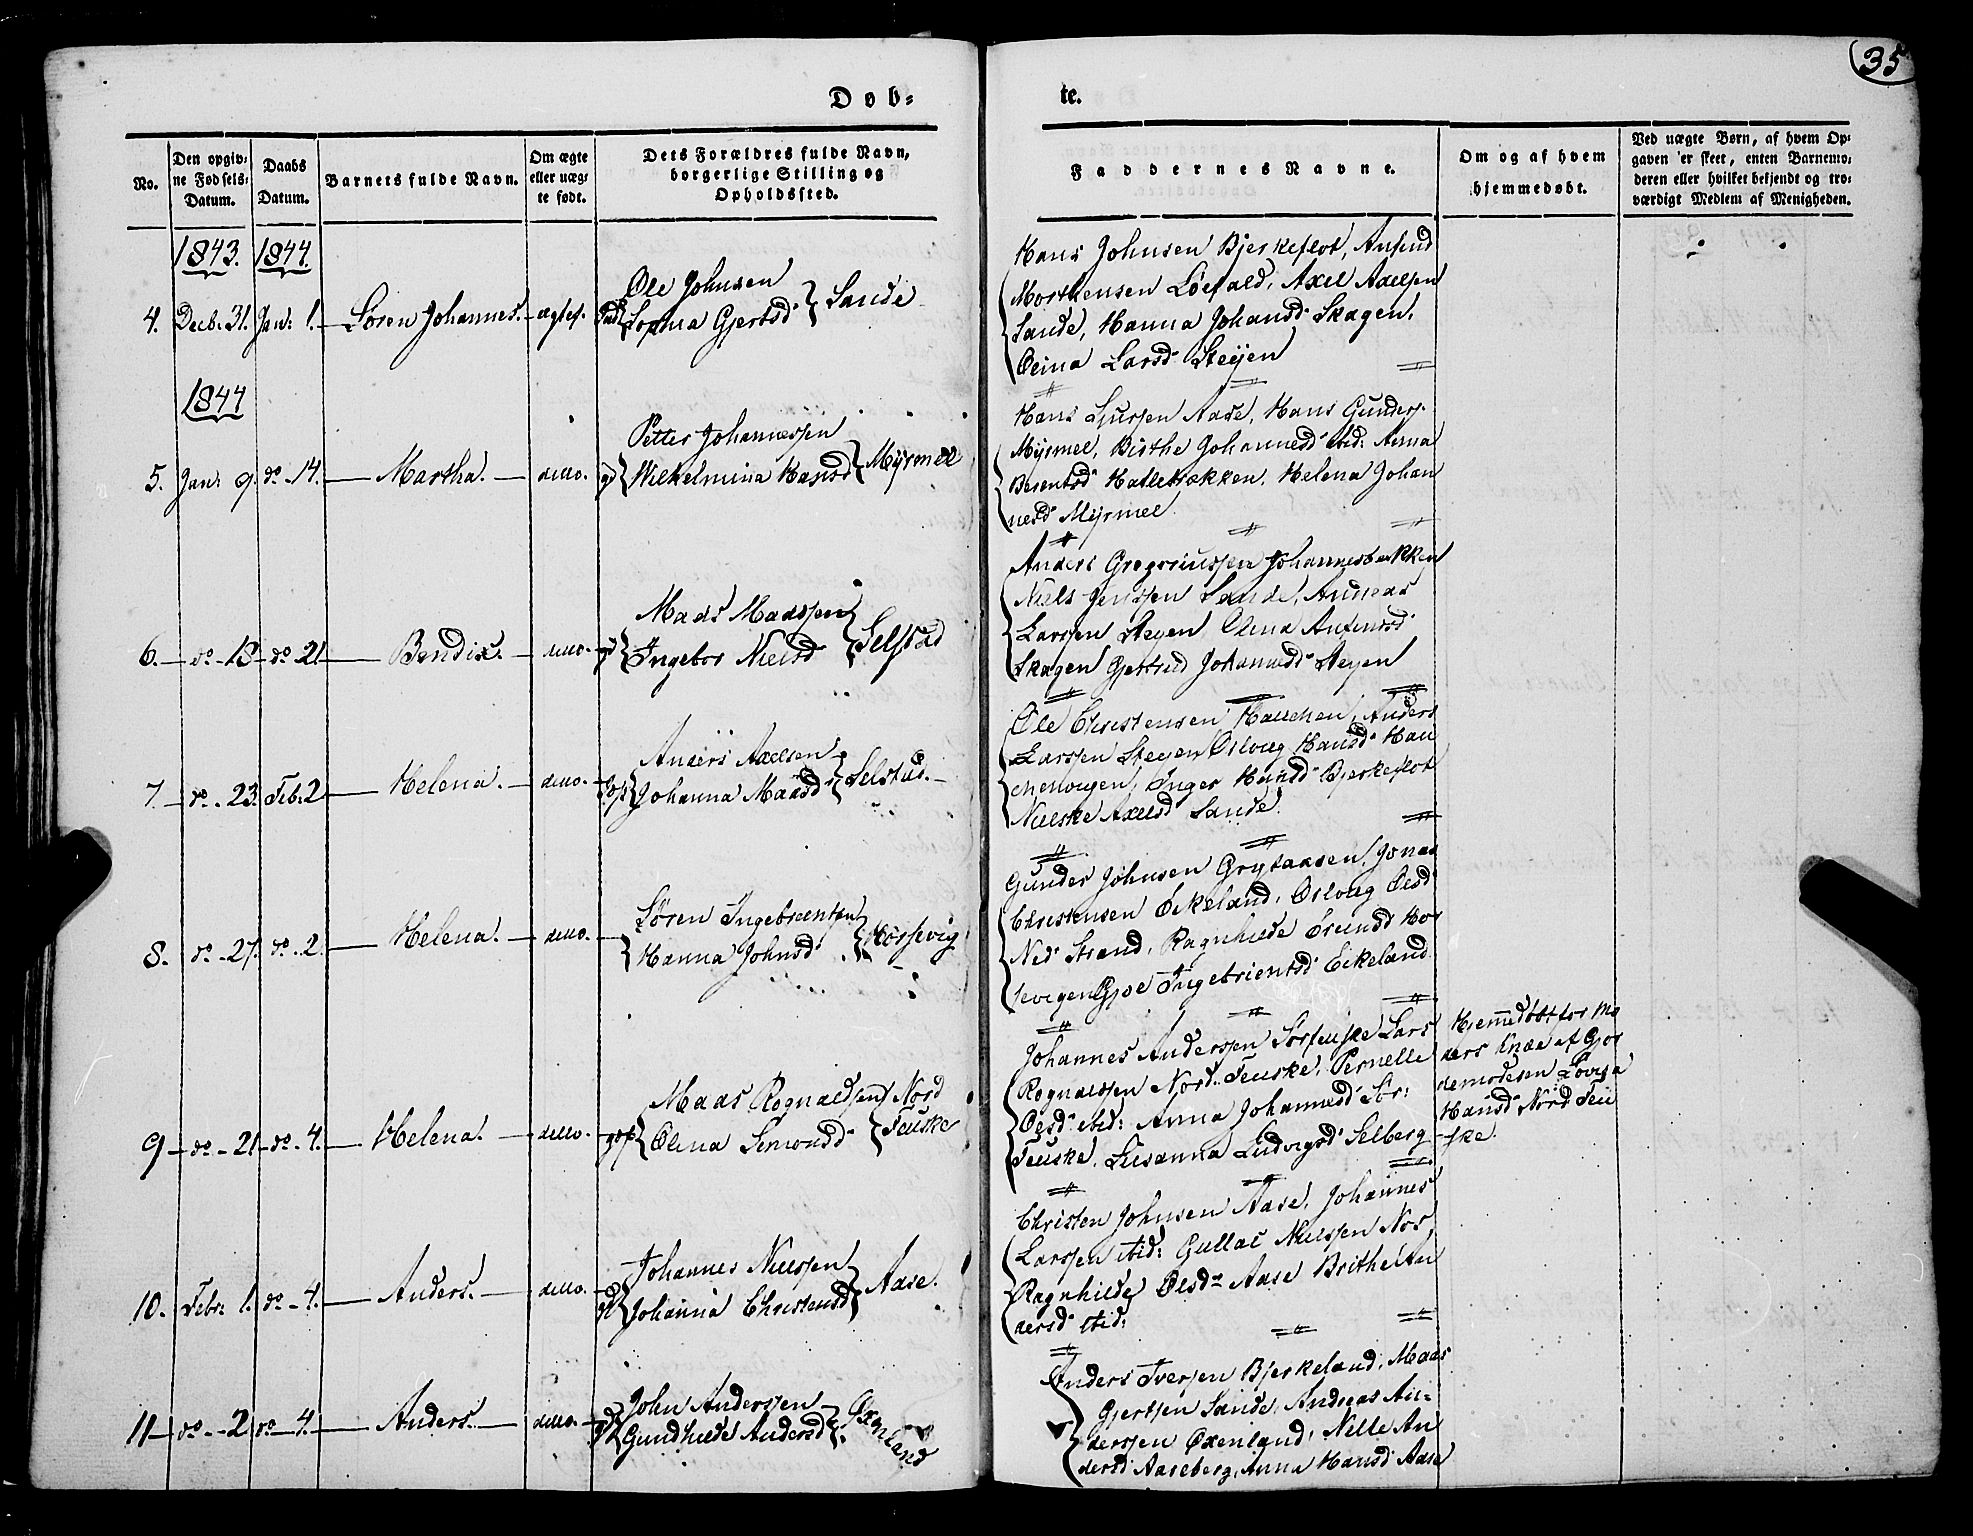 35
Døb-
te.
No.
Den opgiv-
ne Fødsels-
Datum.
Daabs
Datum.
Barnets fulde Navn.
Om ægte
eller uæg-
te født.
Dets Forældres fulde Navn,
borgerlige Stilling og
Opholdssted.
Faddernes Navne.
Om og af hvem
hjemmedøbt.
Ved uægte Børn, af hvem Op-
gaven er skeet, enten Barnemo-
deren eller hvilket bekjendt og tro-
værdigt Medlem af Menigheden.
1843. 1844.
4. Decb. 31. Jan: 1. Søren Johannes. ægtef.
Ole Johnsen
Sophia Gjertsd Sande
Hans Johnsen Bjerkeflot, Anfind
Morthensen Axel Axelsen
Sande, Hanna Johansd Skagen,
Larsd Steyen
1844
5. Jan: 9. do 14. Martha. ditto.
Petter Johannessen
Wilhelmina Hansd Myrmel
Hans Sjursen Aase, Hans Gunders.
Myrmel, Birthe Johannesd ibid: Anna
Berentsd Hatlebrækken, Helena Johan
nesd Myrmel
6. do 18 do 21 Bendix. ditto.
Mads Madssen
Ingebor Nielsd Selstad
Anders Gregoriussen Johannesbakken
Niels Jenssen Sande, Andreas
Larssen Steyen, Olina Anfinsd
Skagen Gjertrud Johannesd Steyen
7. do 23. Feb. 2 Helena. ditto.
Anders Axelsen
Johanna Maasd Selstad.
Ole Christensen Anders
Larssen Steyen Oslaug Hansd Hau
chevogen, Inger Hansd Bjerkeflot
Nilske Axelsd Sande.
8. do 27. do 2. Helena. ditto.
Søren Ingebrientsen
Hanna Johnsd Horsevig
Gunder Johnsen Grytaasen, Jonas
Christensen Eikeland, Oslaug Olsd
Ned Strand, Ragnhilde Hor
sevigen, Ingebrientsd Eikeland
9 do 21 do 4. Helena. ditto.
Maas Rognaldsen Nord
Olina Simonsd Teuske
Johannes Anderssen Sørteuske Lars
Rognalssen Nord Teuske, Pernelle
Olsd ibid: Anna Johannesd Sør-
Teuske, Susanna Ludvigsd Selberg
Hjemmedøbt for Mo
ders Knæe af Gjor
demodesen Lovisa
Hansd Nord Teu
ske.
10. Febr: 1. do 4. Anders. ditto.
Johannes Nielssen
Johanna Christensd Aase.
Christen Johnsen Aase, Johannes
Larssen ibid: Gullac Nielssen
Ragnhilde Olsd Aase Brithe An
dersd ibid:
11 do 2 do 4. Anders. ditto.
John Anderssen
Gundhilde Andersd Oxenland
Anders Iversen Bjerkeland, Maas
Gjertsen Sande, Andreas An-
derssen Øxenland, Nille An
dersd Aaseberg, Anna Hansd Aase